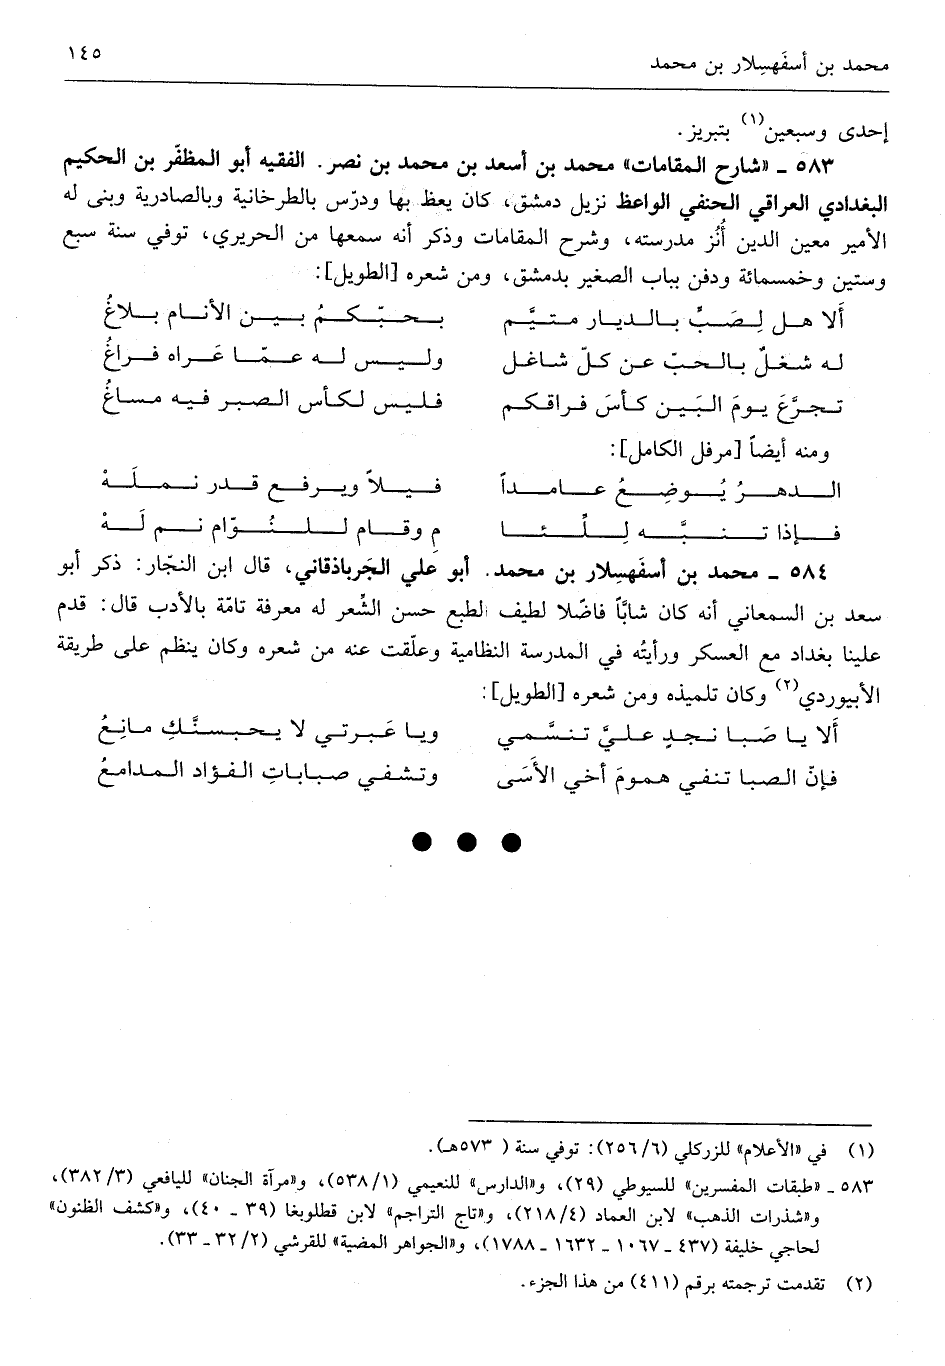 محمد بن أسفَهسِلار بن محمد ١٤٥
إحدى وسبعين(١) بتبريز.
٥٨٣ ـ «شارح المقامات» محمد بن أسعد بن محمد بن نصر. الفقيه أبو المظفّر بن الحكيم
البغدادي العراقي الحنفي الواعظ نزيل دمشق، كان يعظ بها ودرّس بالطرخانية وبالصادرية وبنى له
الأمير معين الدين أُنُز مدرسته، وشرح المقامات وذكر أنه سمعها من الحريري، توفي سنة سبع
وستين وخمسمائة ودفن بباب الصغير بدمشق، ومن شعره [الطويل]:
ألا هل لِصَبٍّ بالديار متيَّم بحبّكمُ بين الأنام بلاغُ
له شغلٌ بالحبّ عن كلّ شاغل وليس له عمّا عَراه فراغُ
تجرَّعَ يومَ البَين كأسَ فراقكم فليس لكأس الصبر فيه مساغُ
ومنه أيضاً [مرفل الكامل]:
الدهرُ يُوضِعُ عامداً فيلاً ويرفع قدر نملَهْ
فإذا تنبَّه لِلِّئا م وقام للنُوّام نم لَهْ
٥٨٤ ـ محمد بن أسفَهسِلار بن محمد. أبو علي الجَرباذقاني، قال ابن النجّار: ذكر أبو
سعد بن السمعاني أنه كان شابًّا فاضلًا لطيف الطبع حسن الشِّعر له معرفة تامّة بالأدب قال: قدم
علينا بغداد مع العسكر ورأيتُه في المدرسة النظامية وعلّقت عنه من شعره وكان ينظم على طريقة
الأبيوردي(٢) وكان تلميذه ومن شعره [الطويل]:
ألا يا صَبا نجدٍ عليَّ تنسَّمي ويا عَبرتي لا يحبسنَّكِ مانِعُ
فإنّ الصبا تنفي همومَ أخي الأَسَى وتشفي صباباتِ الفؤاد المدامعُ
(١) في «الأعلام» للزركلي (٢٥٦/٦): توفي سنة ( ٥٧٣هـ).
٥٨٣ ـ «طبقات المفسرين» للسيوطي (٢٩)، و«الدارس» للنعيمي (٥٣٨/١)، و«مرآة الجنان» لليافعي (٣٨٢/٣)،
و«شذرات الذهب» لابن العماد (٢١٨/٤)، و«تاج التراجم» لابن قطلوبغا (٣٩ ـ ٤٠)، و«كشف الظنون»
لحاجي خليفة (٤٣٧ ـ ١٠٦٧ ـ ١٦٣٢ ـ ١٧٨٨)، و«الجواهر المضية» للقرشي (٣٢/٢ ـ ٣٣).
(٢) تقدمت ترجمته برقم (٤١١) من هذا الجزء.